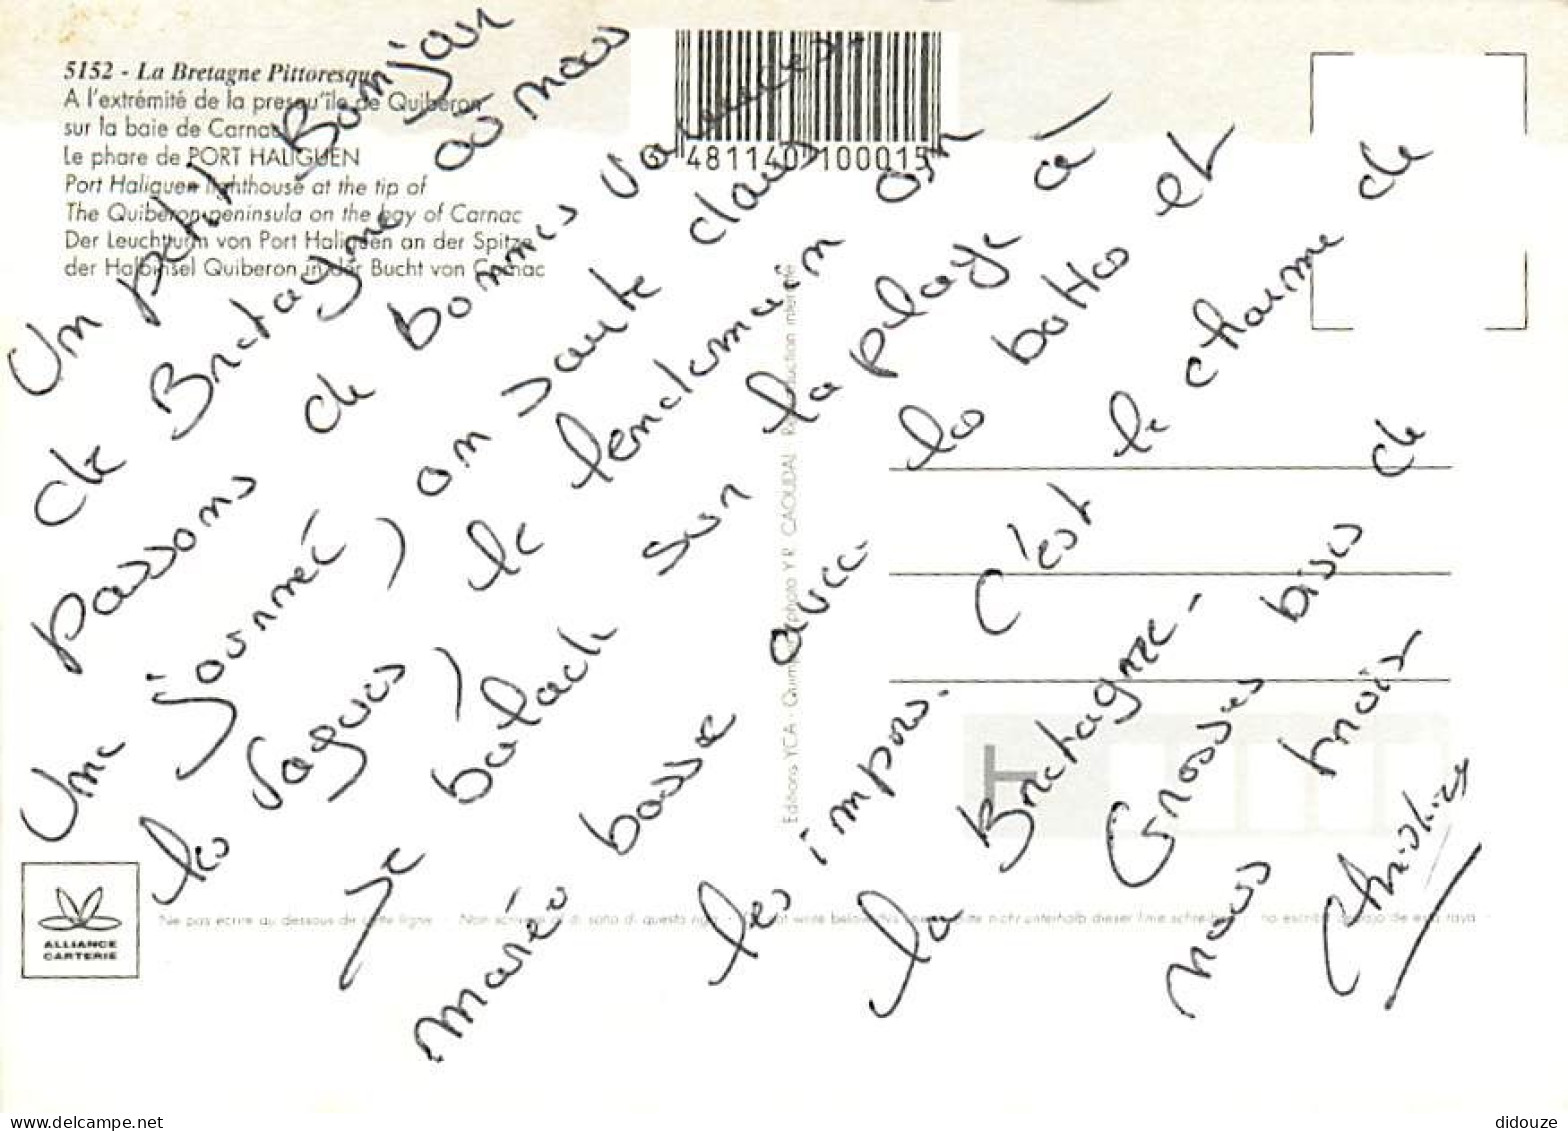 5152 - La Bretagne Pittoresque
A l'extrémité de la presqu'île de Quiberon
sur la baie de Carnac
Le phare de PORT HALIGUEN
Port Haliguen lighthouse at the tip of
The Quiberon peninsula on the bay of Carnac
Der Leuchtturm von Port Haliguen an der Spitze
der Halbinsel Quiberon in der Bucht von Carnac
481140 100015
Un petit Bonjour
de Bretagne où nous
passons de bonnes vacances.
Une journée, on saute dans
les vagues, le lendemain on
se balade sur la plage à
marée basse avec les bottes et
les impers. C'est le charme de
la Bretagne.
Grosses bises de
nous trois
Christine
Editions YCA - Quimper photo Y.R. CAOUDAL Reproduction interdite
ALLIANCE
CARTERIE
Ne pas écrire au dessous de cette ligne - Non scrivere al di sotto di questa riga - Do not write below this line - Bitte nicht unterhalb dieser linie schreiben - no escribir abajo de esta raya
didouze